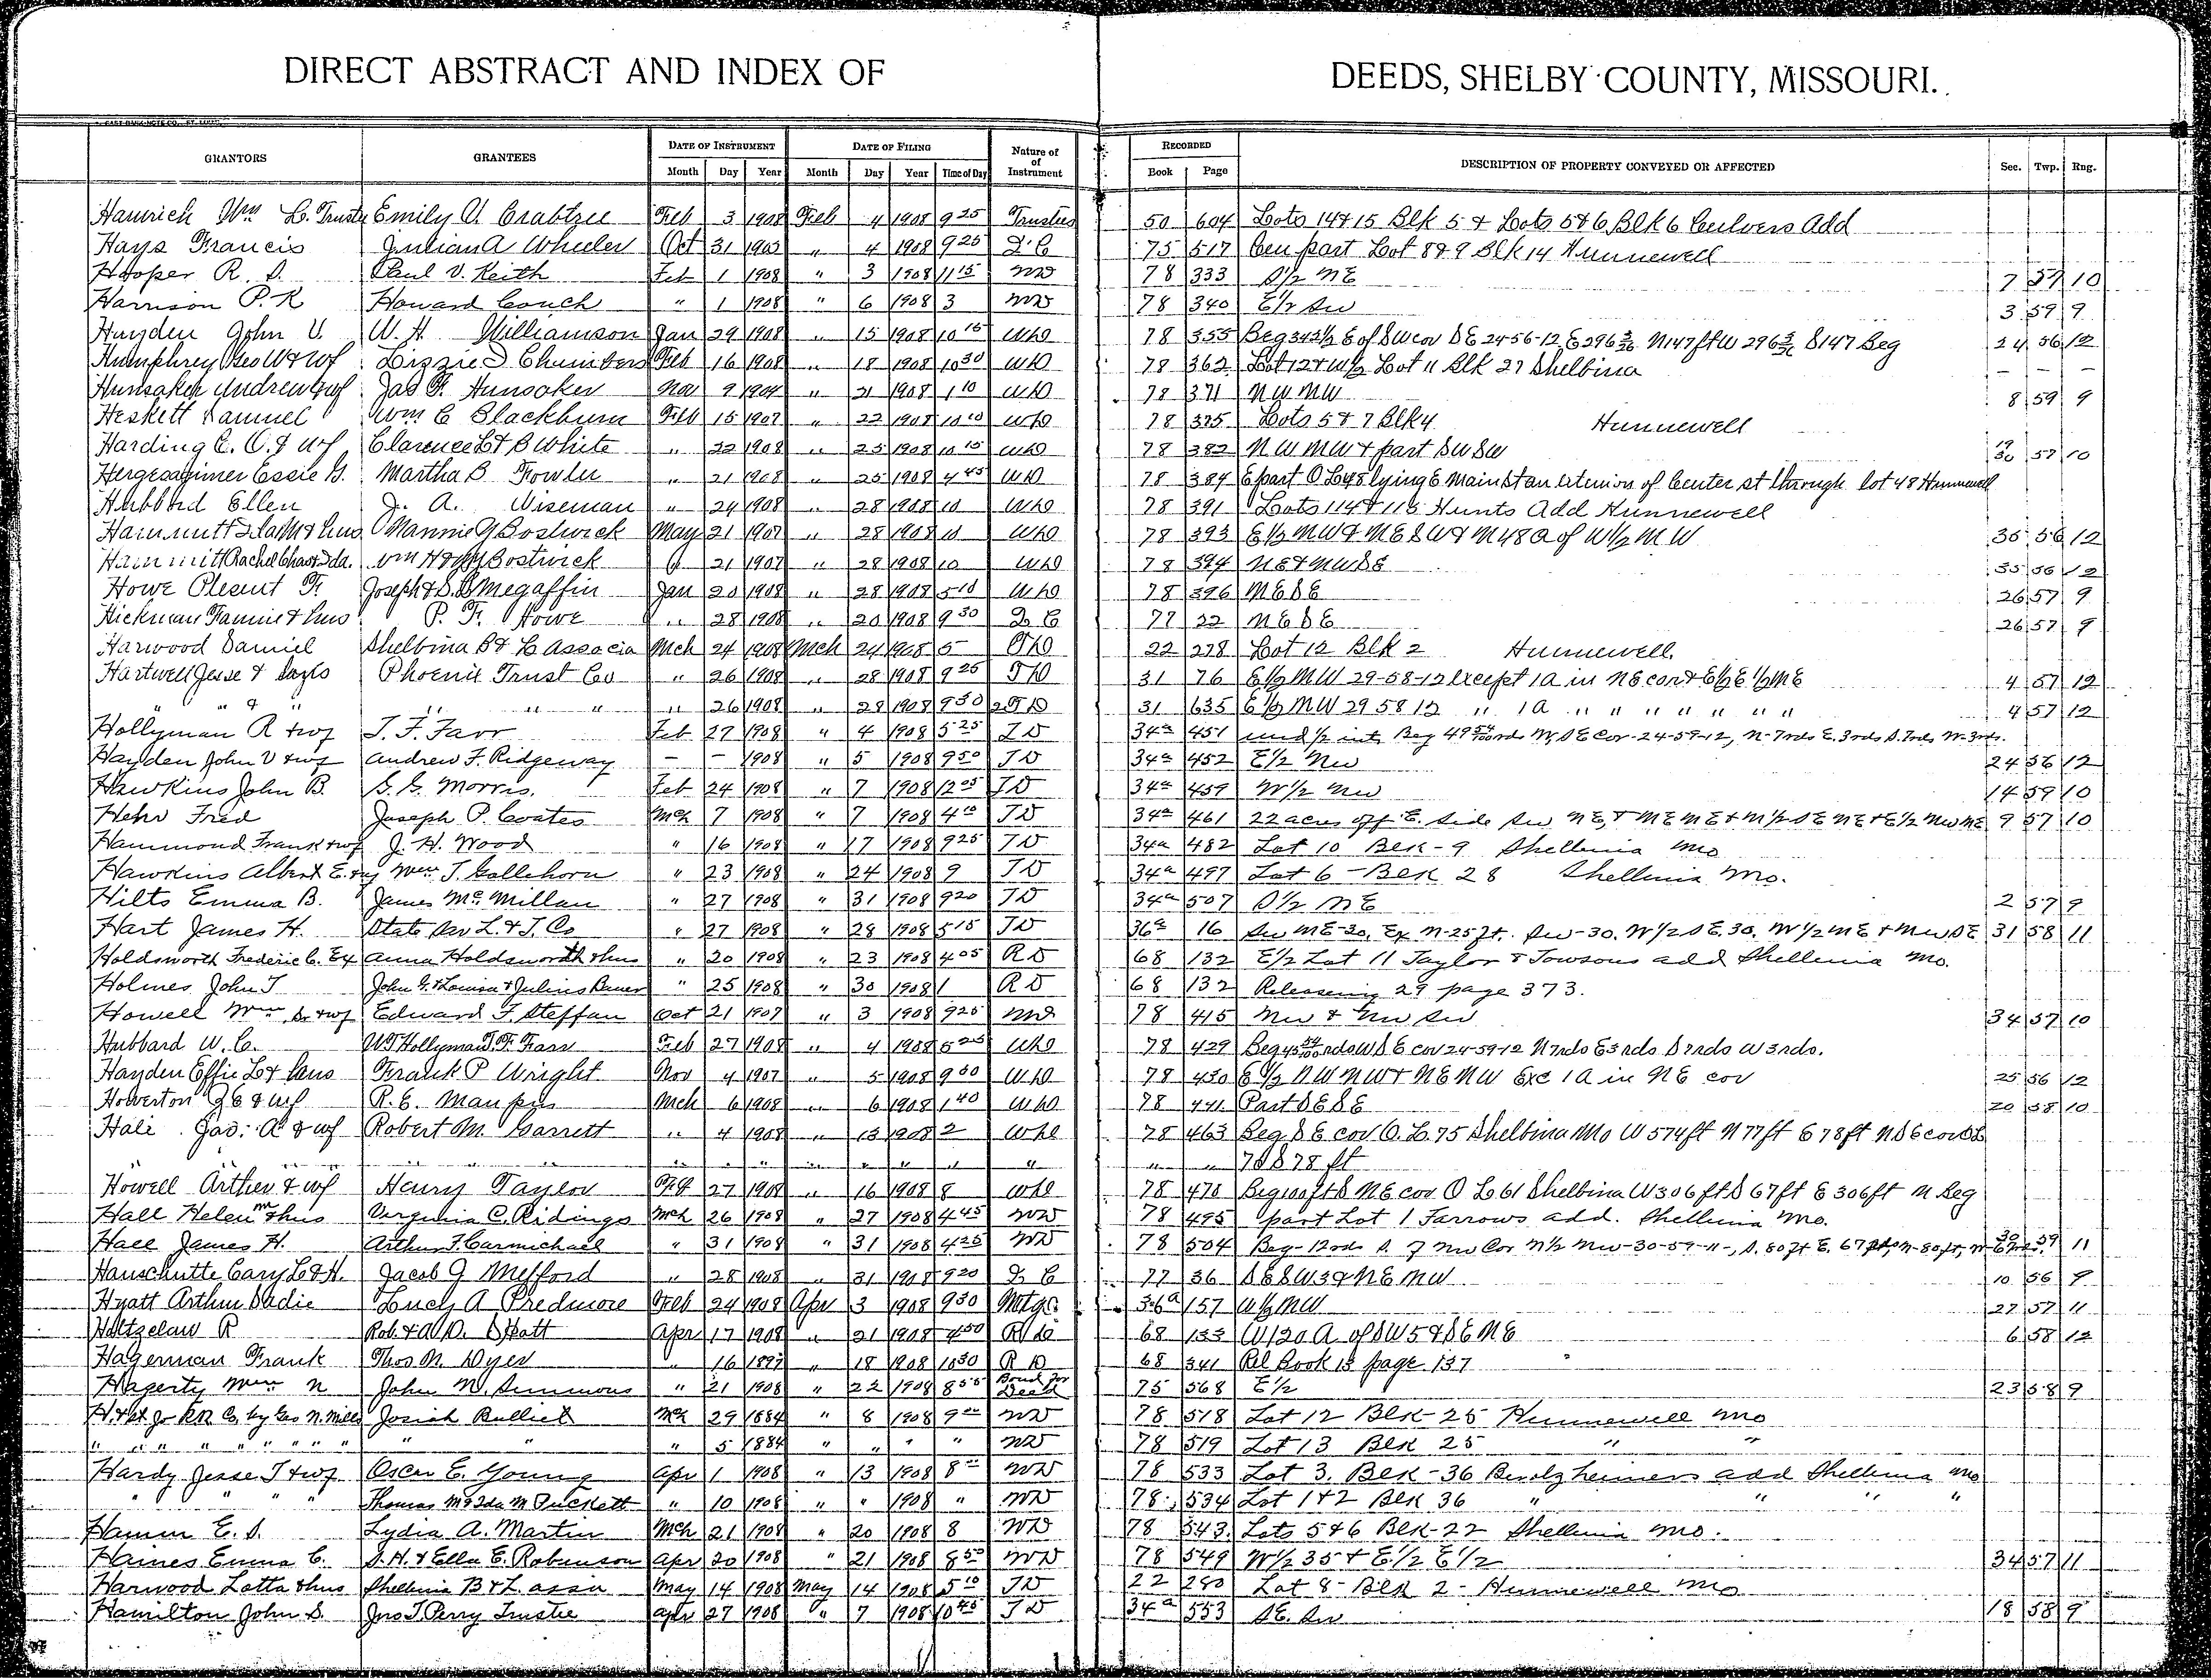 DIRECT ABSTRACT AND INDEX OF DEEDS, SHELBY COUNTY, MISSOURI.
GRANTORS GRANTEES DATE OF INSTRUMENT DATE OF FILING Nature of of Instrument RECORDED DESCRIPTION OF PROPERTY CONVEYED OR AFFECTED Sec. Twp. Rng.
Month Day Year Month Day Year Time of Day Book Page
Hamrich Wm L. Truste Emily V. Crabtree Feb 3 1908 Feb 4 1908 9 25 Trustees 50 604 Lots 14 & 15 Blk 5 & Lots 5 & 6 Blk 6 Culvers Add
Hays Francis Julian A Wheeler Oct 31 " 4 1908 9 25 Q C 75 517 Cen part Lot 8 & 9 Blk 14 Hunnewell
Hooper R. S. Paul V. Keith Feb 1 1908 " 3 1908 11 15 WD 78 333 S 1/2 NE 7 57 10
Harrison P. K Howard Couch " 1 1908 " 6 1908 3 WD 78 340 E 1/2 SW 3 59 9
Hayden John V. W. H. Williamson Jan 29 1908 " 15 1908 10 15 WD 78 355 Beg 342 1/2 E of SW cor SE 24-56-12 E 296 N 147 ft W 296 S 147 Beg 24 56 12
Humphrey Geo W & Wf Lizzie D Chambers Feb 16 1908 " 18 1908 10 30 WD 78 362 Lot 12 & W 1/2 Lot 11 Blk 27 Shelbina – – –
Hunsaker Andrew & wf Jas F. Hunsaker Nov 9 1904 " 21 1908 1 10 WD 78 371 NW NW 8 59 9
Heskett Samuel Wm C Blackburn Feb 15 1907 " 22 1908 10 10 WD 78 375 Lots 5 & 7 Blk 4 Hunnewell
Harding E. C. & wf Clarence L & B White " 22 1908 " 25 1908 10 15 WD 78 382 NW NW & part SW SW 19 30 57 10
Hergesheimer Essie G. Martha B Fowler " 21 1908 " 25 1908 4 45 WD 78 384 E part O L 48 lying E Main St an extenion of Center st through lot 48 Hunnewell
Hubbard Ellen J. A. Wiseman " 24 1908 " 28 1908 10 WD 78 391 Lots 114 & 115 Hunts Add Hunnewell
Hammitt Ida M & hus Mannie Y Bostwick May 21 1907 " 28 1908 10 WD 78 393 E 1/2 NW & NE SW & N 48 A of W 1/2 NW 35 56 12
Hammitt Rachel Chas & Ida. Wm H Bostwick " 21 1907 " 28 1908 10 WD 78 394 NE & NW SE 35 56 12
Howe Pleasnt F. Joseph & S. B Megaffin Jan 20 1908 " 28 1908 5 10 WD 78 396 NE SE 26 57 9
Hickman Fannie & hus P. F. Howe " 28 1908 " 20 1908 9 30 Q C 77 22 NE SE 26 57 9
Harwood Daniel Shelbina B & L Associa Mch 24 1908 Mch 24 1908 5 TD 22 278 Lot 12 Blk 2 Hunnewell.
Hartwell Jesse & Phoenix Trust Co " 26 1908 " 28 1908 9 25 TD 31 76 E 1/2 NW 29-58-12 Except 1 A in NE cor & E 1/2 E 1/2 NE 4 57 12
" " & " " " " " 26 1908 " 28 1908 9 30 2 TD 31 635 E 1/2 NW 29 58 12 " 1 A " " " " " " " 4 57 12
Hollyman R & wf T. F. Farr Feb 27 1908 " 4 1908 5 25 TD 34a 451 und 1/2 int Beg 49 rods W, SE Cor-24-59-12, N-7rds E. 3rds S. 7rds W-3rds.
Hayden John V & wf Andrew F. Ridgeway – – 1908 " 5 1908 9 50 TD 34a 452 E 1/2 NW 24 56 12
Hawkins John B. S. G. Morris. Feb 24 1908 " 7 1908 12 05 TD 34a 459 W 1/2 NW 14 59 10
Hehr Fred Joseph P. Coates Mch 7 1908 " 7 1908 4 10 TD 34a 461 22 acres off E. side SW NE, & NE NE & N 1/2 SE NE & E 1/2 NW NE 9 57 10
Hammond Frank & wf J. H. Wood " 16 1908 " 17 1908 9 25 TD 34a 482 Lot 10 Blk-9 Shelbina Mo
Hawkins Albert E. & wf Wm T. Gallehorn " 23 1908 " 24 1908 9 TD 34a 497 Lot 6 - Blk 28 Shelbina Mo.
Hilts Emma B. James McMillan " 27 1908 " 31 1908 9 20 TD 34a 507 S 1/2 NE 2 57 9
Hart James H. State Sav L. & T. Co " 27 1908 " 28 1908 5 15 TD 36a 16 SW NE-30. Ex N-25 ft. SW-30. W 1/2 SE. 30. W 1/2 NE & NW SE 31 58 11
Holdsworth Frederic C. Ex Anna Holdsworth & hus " 20 1908 " 23 1908 4 05 R D 68 132 E 1/2 Lot 11 Taylor & Towsons add Shelbina Mo.
Holmes John T John G. & Louisa & Julius Bauer " 25 1908 " 30 1908 1 R D 68 132 Releasing 29 page 373.
Howell Wm S. & wf Edward F. Steffan Oct 21 1907 " 3 1908 9 25 WD 78 415 NW & NW SW 34 57 10
Hubbard W. C. WT Hollyman T. F. Farr Feb 27 1908 " 4 1908 5 25 WD 78 429 Beg 49 rds W SE cor 24-59-12 N 7rds E 3rds S 7rds W 3rds.
Hayden Effie L & hus Frank P Wright Nov 4 1907 " 5 1908 9 50 WD 78 430 E 1/2 NW NW & NE NW Exc 1 A in NE cor 25 56 12
Howerton G E & wf R. E. Maupin Mch 6 1908 " 6 1908 1 40 WD 78 441 Part SE SE 20 58 10
Hale Jas. A & wf Robert M. Garrett " 4 1908 " 13 1908 2 WD 78 463 Beg SE cor O. L. 75 Shelbina Mo W 574 ft N 77 ft E 78 ft N SE cor OL
" " " " " " " " " " " " " " " " " 70 S 78 ft
Howell Arther & wf Henry Taylor Feb 27 1908 " 16 1908 8 WD 78 470 Beg 100 ft S NE cor O L 61 Shelbina W 306 ft S 67 ft E 306 ft N Beg
Hall Helen M & hus Virginia C. Ridings Mch 26 1908 " 27 1908 4 45 WD 78 495 part Lot 1 Farrows add. Shelbina Mo.
Hall James H. Arthur F. Carmichael " 31 1908 " 31 1908 4 25 WD 78 504 Beg-12 rds S. of NW Cor N 1/2 NW-30-59-11-, S. 80 ft E. 67 ft, N-80 ft, W 30 59 11
Hanschutte Cary L & H. Jacob J Mefford " 28 1908 " 31 1908 9 20 Q C 77 36 SE SW 3 & NE NW 10 56 9
Hyatt Arthur Sadie Lucy A Predmore Feb 24 1908 Apr 3 1908 9 30 Motge 36a 157 W 1/2 NW 27 57 11
Holtzclaw R Rob & A D. Spatt Apr 17 1908 " 21 1908 4 50 R D 68 133 W 120 A of SW 5 & SE NE 6 58 12
Hagerman Frank Thos M Dyer " 16 1897 " 18 1908 10 30 R D 68 341 Rel Book 15 page 137
Hagerty Wm N John N. Simmons " 21 1908 " 22 1908 8 55 Bond for Deed 75 568 E 1/2 23 58 9
H. & St Jo RR Co, by Geo N. Mills Josiah Bullick Mch 29 1884 " 8 1908 9 WD 78 518 Lot 12 Blk-25 Hunnewell Mo
" " " " " " " " " " " 5 1884 " " " " WD 78 519 Lot 13 Blk 25 " "
Hardy Jesse T & wf Oscar E. Young Apr 1 1908 " 13 1908 8 WD 78 533 Lot 3. Blk-36 Bendzheimers add Shelbina Mo
" " " " Thomas M & Ida M Puckett " 10 1908 " " 1908 " WD 78 534 Lot 1 & 2 Blk 36 " " " "
Hamm E. S. Lydia A. Martin Mch 21 1908 " 20 1908 8 WD 78 543. Lots 5 & 6 Blk-22 Shelbina Mo.
Haines Emma C. S. H. & Ella E. Robinson Apr 20 1908 " 21 1908 8 50 WD 78 549 W 1/2 35 & E 1/2 E 1/2 34 57 11
Harwood Lotta & hus Shelbina B & L. assn May 14 1908 May 14 1908 5 10 TD 22 280 Lot 8- Blk 2- Hunnewell Mo
Hamilton John S. Jno T. Perry Trustee Apr 27 1908 " 7 1908 10 45 TD 34a 553 SE. SW 18 58 9